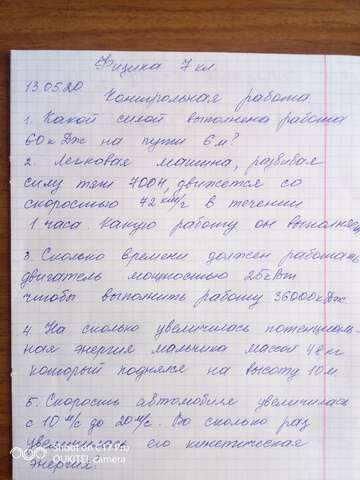 Физика 7 кл.
13.05.20.
Контрольная работа.
1. Какой силой выполнена работа
60 кДж на пути 6 м?
2. Легковая машина, развивая
силу тяги 700Н, движется со
скоростью 72 км/г в течении
1 часа. Какую работу он выполняет
3. Сколько времени должен работать
двигатель мощностью 25кВт
чтобы выполнить работу 36000кДж
4. На сколько увеличилась потенциаль-
ная энергия мальчика массой 48 кг
который поднялся на высоту 10 м
5. Скорость автомобиля увеличилась
с 10 м/с до 20 м/с. Во сколько раз
увеличилась его кинетическая
энергия.
Shot on C17 Pro
OUKITEL camera